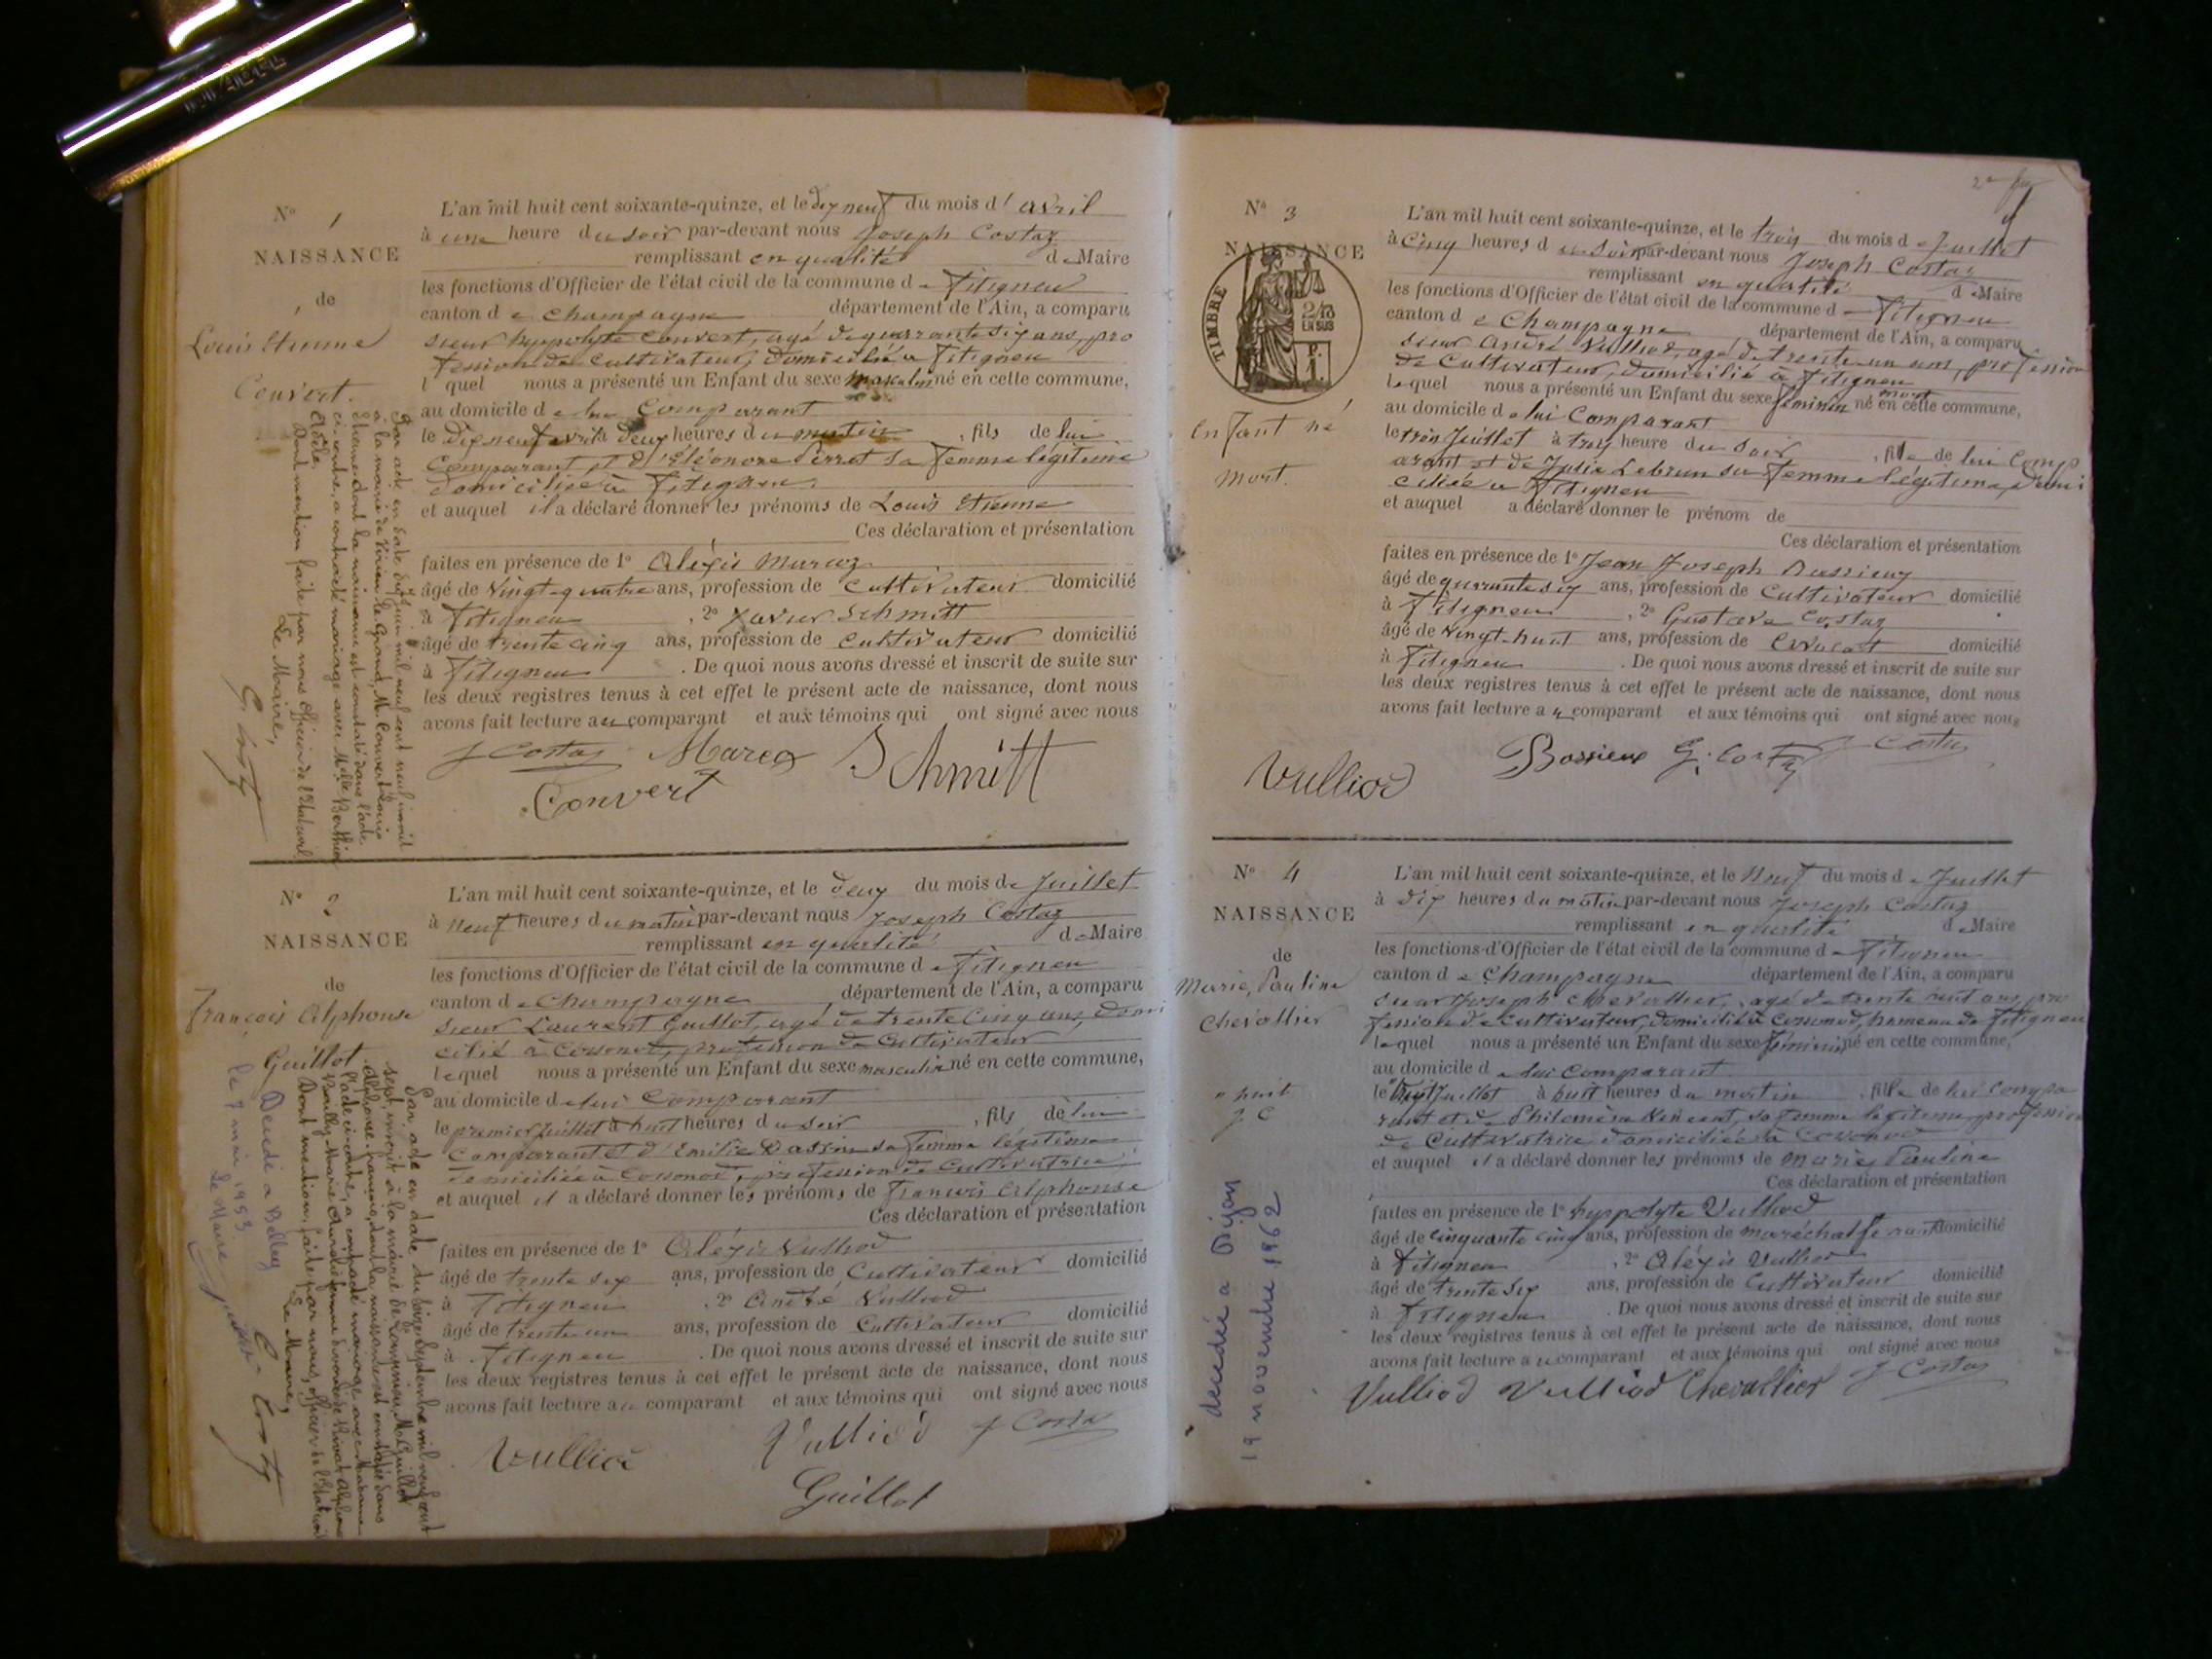 N° 1
NAISSANCE
de
Louis Etienne
Convert.
L'an mil huit cent soixante-quinze, et le dix neuf du mois d'avril
à une heure du soir par-devant nous Joseph Costaz
remplissant en qualité de Maire
les fonctions d'Officier de l'état civil de la commune de Fitignieu
canton de Champagne département de l'Ain, a comparu
sieur hyppolyte Convert, agé de quarrante six ans, pro
fession de Cultivateur, domicilié à Fitignieu
lequel nous a présenté un Enfant du sexe maskulin né en cette commune,
au domicile de lui Comparant
le dix neuf avril à deux heures du matin, fils de lui
Comparant et d'Eléonore Perret sa femme légitime
domiciliée à Fitignieu
et auquel il a déclaré donner les prénoms de Louis Etienne
Ces déclaration et présentation
faites en présence de 1° Aléxis Marcoz
âgé de vingt-quatre ans, profession de Cultivateur domicilié
à Fitignieu, 2° Xavier Schmitt
âgé de trente cinq ans, profession de Cultivateur domicilié
à Fitignieu. De quoi nous avons dressé et inscrit de suite sur
les deux registres tenus à cet effet le présent acte de naissance, dont nous
avons fait lecture au comparant et aux témoins qui ont signé avec nous
J Costaz Marcoz Schmitt
Convert
Par acte en date du six juin mil neuf cent neuf inscrit
à la mairie de Virieu-le-Grand, M. Convert Louis
Etienne dont la naissance est constatée dans l'acte
ci-contre, a contracté mariage avec Melle Berthier
Adèle.
Dont mention faite par nous Officier de l'Etat civil
Le Maire,
G. Costaz
N° 2
NAISSANCE
de
François Alphonse
Guillot
L'an mil huit cent soixante-quinze, et le deux du mois de Juillet
à neuf heures du matin par-devant nous Joseph Costaz
remplissant en qualité de Maire
les fonctions d'Officier de l'état civil de la commune de Fitignieu
canton de Champagne, département de l'Ain, a comparu
sieur Laurent Guillot, agé de trente Cinq ans, domi
cilié à Cossonod, profession de Cultivateur
lequel nous a présenté un Enfant du sexe masculin né en cette commune,
au domicile de lui Comparant
le premier Juillet à huit heures du soir, fils de lui
Comparant et d'Emilie Dassin sa femme légitime
domiciliée à Cossonod, profession de Cultivatrice,
et auquel il a déclaré donner les prénoms de François Alphonse
Ces déclaration et présentation
faites en présence de 1° Aléxis Vulliod
âgé de trente six ans, profession de Cultivateur domicilié
à Fitignieu, 2° André Vulliod
âgé de trente un ans, profession de Cultivateur domicilié
à Fitignieu. De quoi nous avons dressé et inscrit de suite sur
les deux registres tenus à cet effet le présent acte de naissance, dont nous
avons fait lecture au comparant et aux témoins qui ont signé avec nous
Vulliod Vulliod J Costaz
Guillot
Par acte en date du septembre mil neuf cent
sept, inscrit à la mairie de M. Guillot
Alphonse François, dont la naissance est constatée dans
l'acte ci-contre, a contracté mariage avec Madame
Marie
Dont mention faite par nous, Officier de l'Etat civil
Le Maire,
G. Costaz
Décédé a Belley
le 7 mai 1953
Le Maire
N° 3
NAISSANCE
TIMBRE
2/10
EN SUS
Enfant né
Mort.
L'an mil huit cent soixante-quinze, et le trois du mois de Juillet
à Cinq heures du Soir par-devant nous Joseph Costaz
remplissant en qualité de Maire
les fonctions d'Officier de l'état civil de la commune de Fitignieu
canton de Champagne département de l'Ain, a comparu
sieur André Vulliod, agé de trente-un ans, profession
de Cultivateur, domicilié à Fitignieu
lequel nous a présenté un Enfant du sexe féminin né mort en cette commune,
au domicile de lui Comparant
le trois Juillet à trois heure du soir, fille de lui Comp
arant et de Julie Lebrun sa femme légitime, domi
ciliée à Fitignieu
et auquel a déclaré donner le prénom de
Ces déclaration et présentation
faites en présence de 1° Jean Joseph Bassieux
âgé de quarante six ans, profession de Cultivateur domicilié
à Fitignieu, 2° Gustave Costaz
âgé de vingt-huit ans, profession de Avocat domicilié
à Fitignieu. De quoi nous avons dressé et inscrit de suite sur
les deux registres tenus à cet effet le présent acte de naissance, dont nous
avons fait lecture au comparant et aux témoins qui ont signé avec nous
Bossieux G. Costaz J Costaz
Vulliod
N° 4
NAISSANCE
de
Marie, Pauline
Chevallier
" huit
J C
L'an mil huit cent soixante-quinze, et le Neuf du mois de Juillet
à dix heures du matin par-devant nous Joseph Costaz
remplissant en qualité de Maire
les fonctions d'Officier de l'état civil de la commune de Fitignieu
canton de Champagne département de l'Ain, a comparu
sieur Joseph Chevallier, agé de trente huit ans, pro
fession de Cultivateur, domicilié à Cossonod, hameau de Fitignieu
lequel nous a présenté un Enfant du sexe féminin né en cette commune,
au domicile de lui Comparant
le huit Juillet à huit heures du matin, fille de lui Compa
rant et de Philomène Vincent, sa femme légitime, profession
de Cultivatrice domiciliée à Cossonod
et auquel il a déclaré donner les prénoms de Marie, Pauline
Ces déclaration et présentation
faites en présence de 1° hyppolyte Vulliod
âgé de cinquante cinq ans, profession de maréchal ferrant domicilié
à Fitignieu, 2° Aléxis Vulliod
âgé de trente six ans, profession de Cultivateur domicilié
à Fitignieu. De quoi nous avons dressé et inscrit de suite sur
les deux registres tenus à cet effet le présent acte de naissance, dont nous
avons fait lecture au comparant et aux témoins qui ont signé avec nous
Vulliod Vulliod Chevallier J Costaz
decedée a Dijon
19 novembre 1962